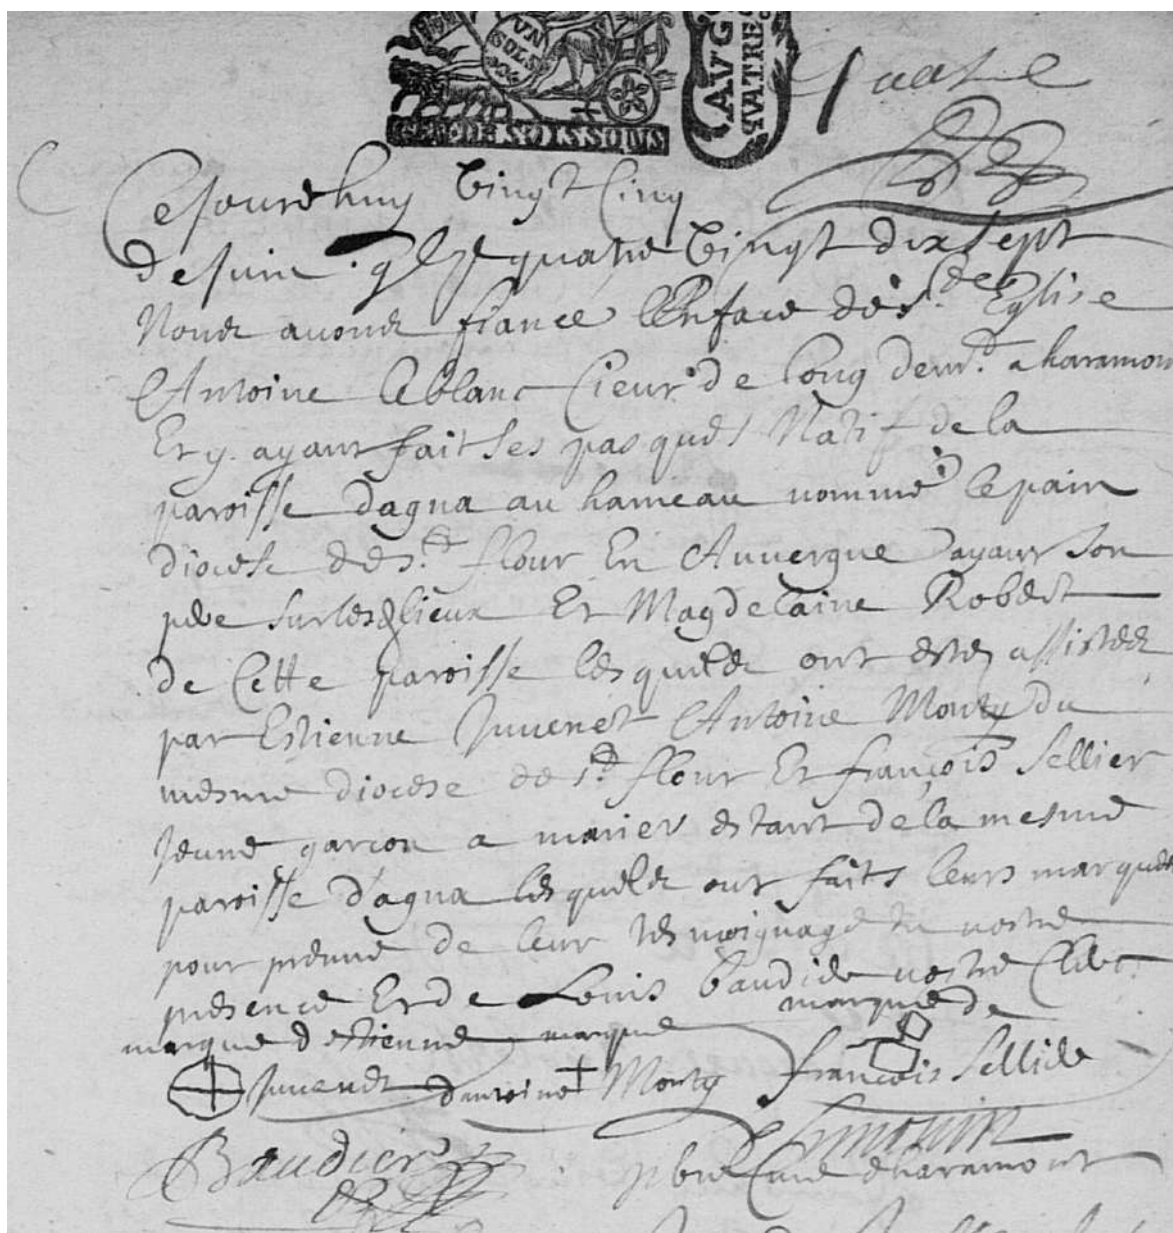 VN
SOLS
GEN DE SOISSONS
AVG
QVATRE
quatre
Cejourdhuy Vingt Cinq
de juin quatre Vingt dix sept
Nous avons fiancé En face de ste Eglise
Antoine leblanc sieur de long demt a haramon
Et y ayant fait ses pasques Natif de la
paroisse dagna au hameau nommé lepain
diocese de st flour En Auvergne ayant son
pere sur les lieux Et Magdelaine Robert
de Cette paroisse lesquels ont estes assistes
par Estienne Juvenet Antoine Monty du
mesme diocese de st flour Et françois Sellier
jeune garcon a marier estant de la mesme
paroisse d'agna lesquels ont faits leurs marques
pour preuve de leur tesmoignage En nostre
presence Et de Louis baudier nostre Clerc
marque destienne marque marque de
Juvenet dantoine Monty françois Sellier
Baudier pbre Curé dharamont